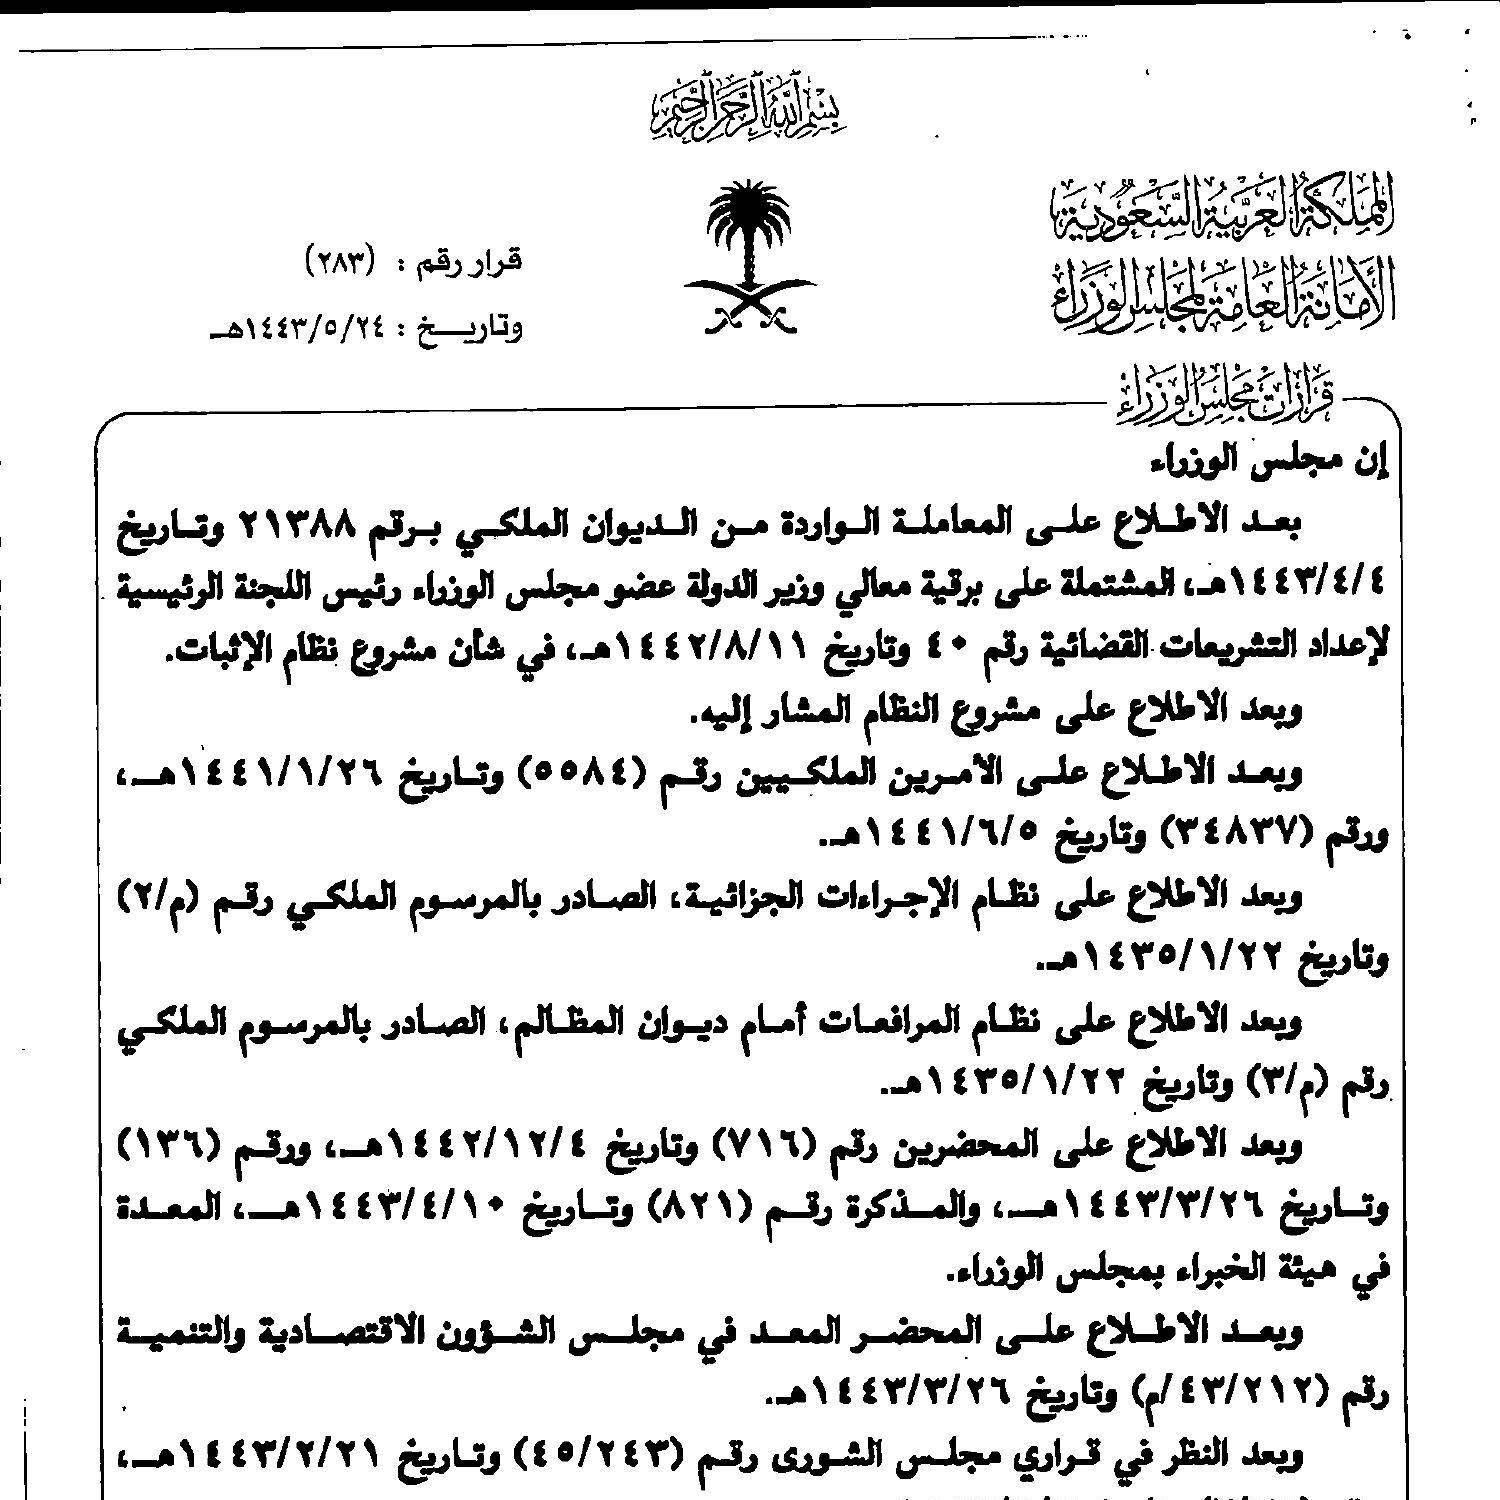 بسم الله الرحمن الرحيم
المملكة العربية السعودية
الأمانة العامة لمجلس الوزراء
قرار رقم : (٢٨٣)
وتاريـــخ : ١٤٤٣/٥/٢٤هـ
قرارات مجلس الوزراء
إن مجلس الوزراء
بعـد الاطـلاع علـى المعاملـة الـواردة مـن الـديوان الملكـي بـرقم ٢١٣٨٨ وتـاريخ
١٤٤٣/٤/٤هـ، المشتملة على برقية معالي وزير الدولة عضو مجلس الوزراء رئيس اللجنة الرئيسية
لإعداد التشريعات القضائية رقم ٤٠ وتاريخ ١٤٤٢/٨/١١هـ، في شأن مشروع نظام الإثبات.
وبعد الاطلاع على مشروع النظام المشار إليه.
وبعـد الاطـلاع علـى الأمـرين الملكـيين رقـم (٥٥٨٤) وتـاريخ ١٤٤١/١/٢٦هـ،
ورقم (٣٤٨٣٧) وتاريخ ١٤٤١/٦/٥هـ.
وبعد الاطلاع على نظـام الإجـراءات الجزائيـة، الصـادر بالمرسـوم الملكـي رقـم (م/٢)
وتاريخ ١٤٣٥/١/٢٢هـ.
وبعد الاطلاع على نظـام المرافعـات أمـام ديـوان المظـالم، الصـادر بالمرسـوم الملكـي
رقم (م/٣) وتاريخ ١٤٣٥/١/٢٢هـ.
وبعد الاطلاع على المحضرين رقم (٧١٦) وتاريخ ١٤٤٢/١٢/٤هـ، ورقـم (١٣٦)
وتـاريخ ١٤٤٣/٣/٢٦هـ، والمـذكرة رقـم (٨٢١) وتـاريخ ١٤٤٣/٤/١٠هـ، المعـدة
في هيئة الخبراء بمجلس الوزراء.
وبعـد الاطـلاع علـى المحضـر المعـد في مجلـس الشـؤون الاقتصـادية والتنميـة
رقم (٤٣/٢١٢/م) وتاريخ ١٤٤٣/٣/٢٦هـ.
وبعد النظر في قـراري مجلـس الشـورى رقـم (٤٥/٢٤٣) وتـاريخ ١٤٤٣/٢/٢١هـ،